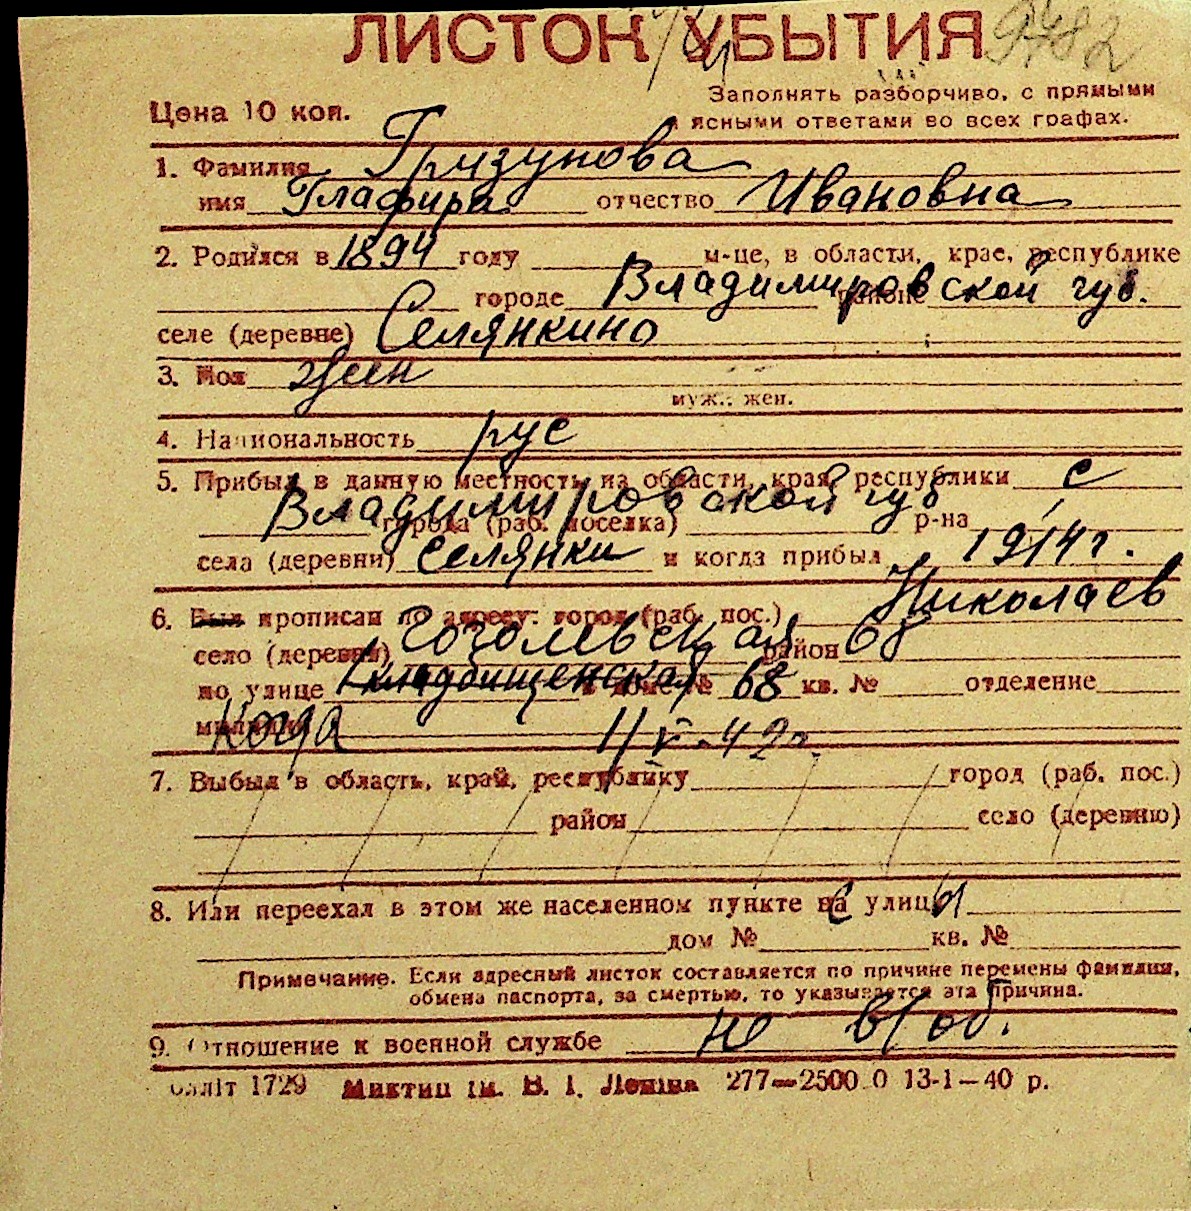 ЛИСТОК УБЫТИЯ
Цена 10 коп.
Заполнять разборчиво, с прямыми
и ясными ответами во всех графах.
1. Фамилия Гризунова
имя Глафира отчество Ивановна
2. Родился в 1894 году м-це, в области, крае, республике
городе Владимировской губ. районе
селе (деревне) Селянкино
3. Пол жен
муж., жен.
4. Национальность рус
5. Прибыл в данную местность из области, края, республики с
Владимировской губ города (раб. поселка) р-на
села (деревни) Селянки и когда прибыл 1914 г.
6. Был прописан по адресу: город (раб. пос.) Николаев
село (деревня) Гоголевская район 68
по улице Кладбищенская в доме № 68 кв. № отделение
милиции Когда 11 V-42 г.
7. Выбыл в область, край, республику город (раб. пос.)
район село (деревню)
8. Или переехал в этом же населенном пункте на улицу
дом № кв. №
Примечание. Если адресный листок составляется по причине перемены фамилии,
обмена паспорта, за смертью, то указывается эта причина.
9. Отношение к военной службе не в/об.
1729 Миктип ім. В. І. Леніна 277—2500 0 13-1—40 р.